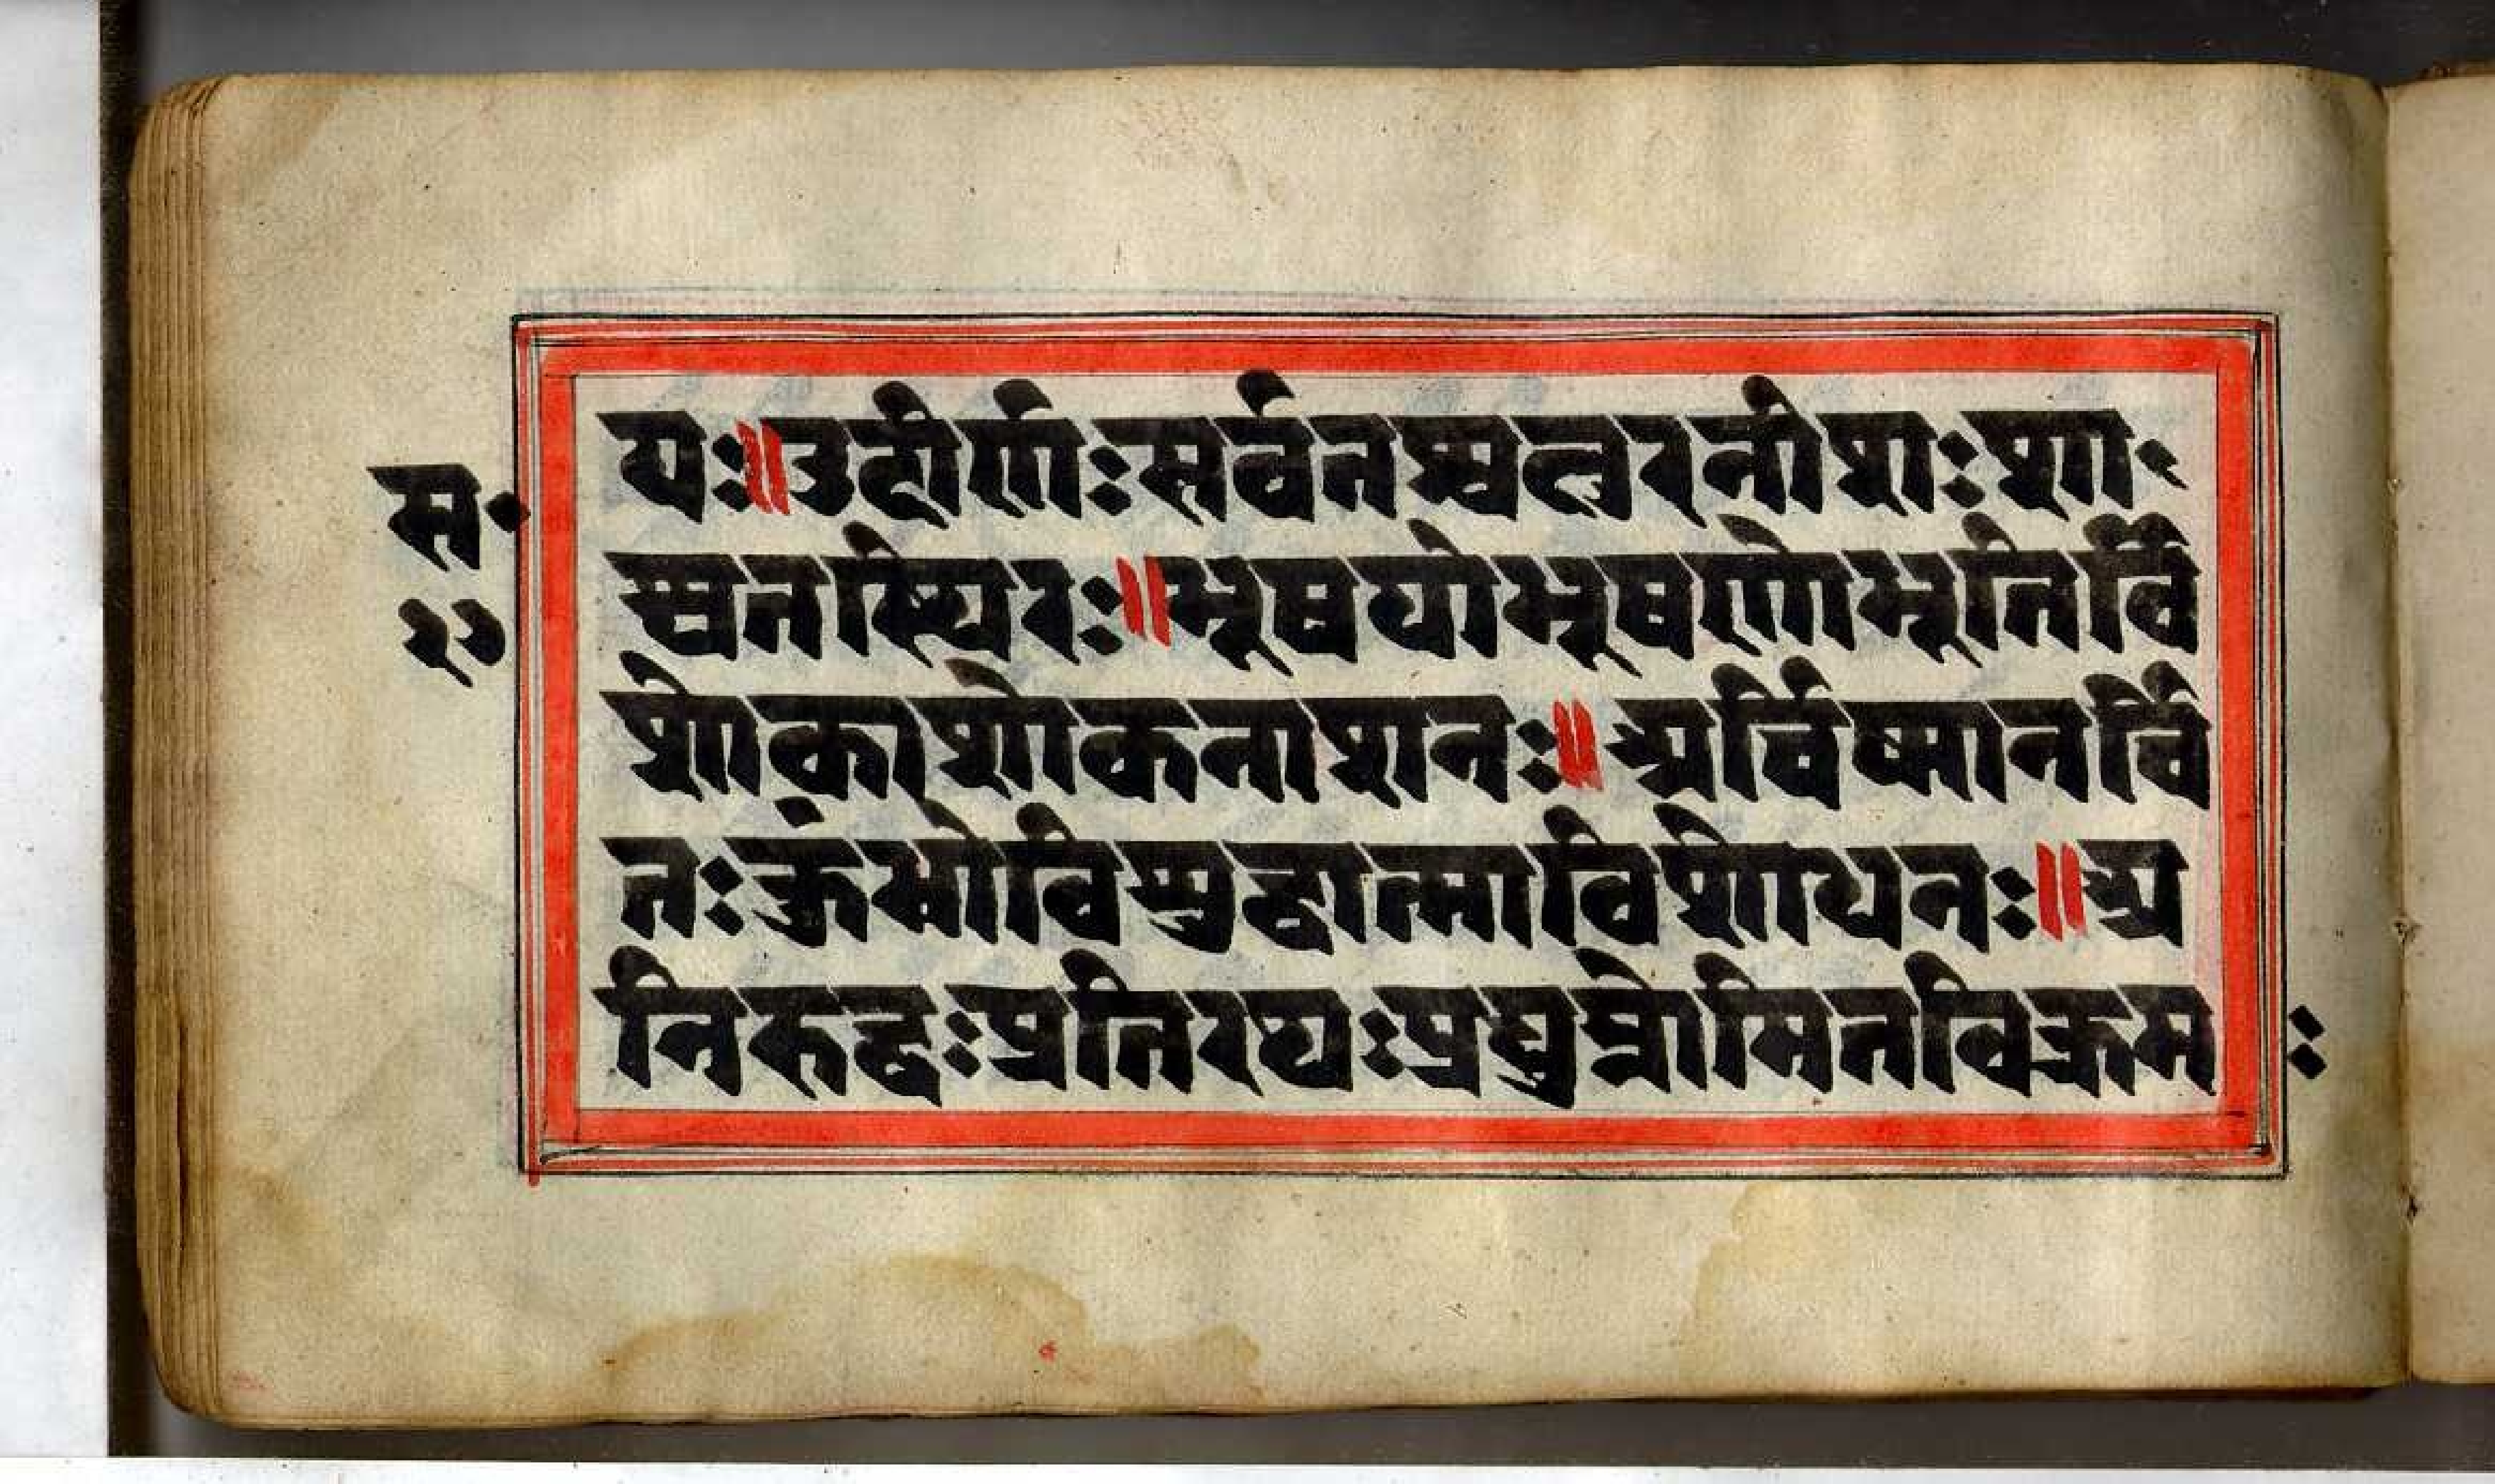 स॰
२७
यः॥उदीर्णःसर्वतश्चक्षुरनीशःशा-
श्वतस्थिरः॥भूषयोभूषणोभूतिर्वि
शोकाशोकनाशनः॥अर्चिष्मानर्चि
तःकुंभोविशुद्धात्माविशोधनः॥अ
निरुद्धःप्रतिरथःप्रद्युम्नोमितविक्रमः